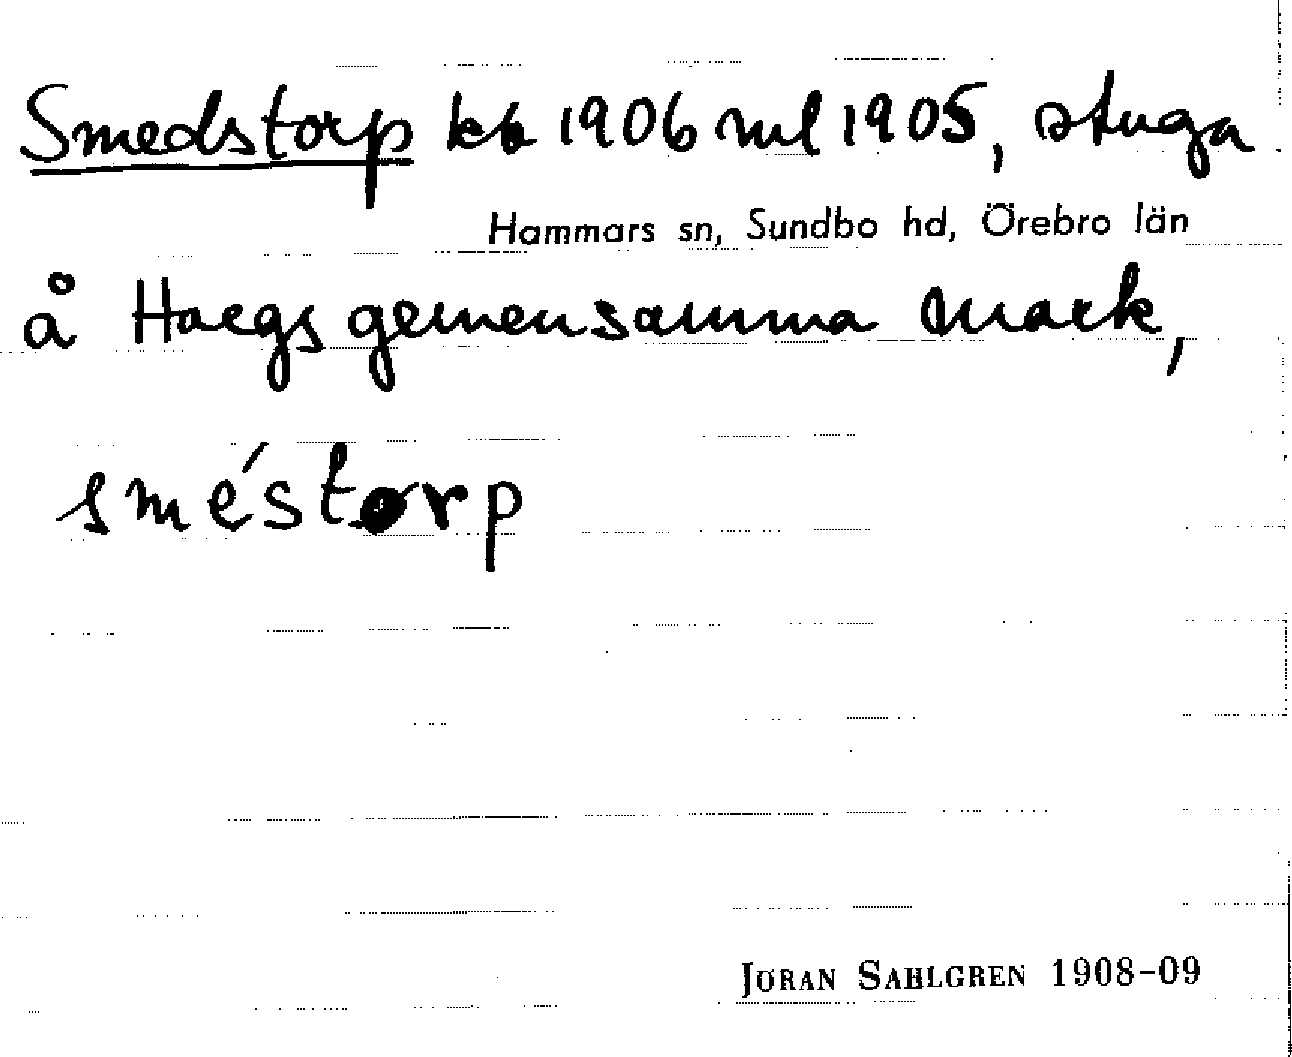 Smedstorp kb 1906 ml 1905, stuga
Hammars sn, Sundbo hd, Örebro län
å Haegs gemensamma mark,
sméstorp
JÖRAN SAHLGREN 1908-09